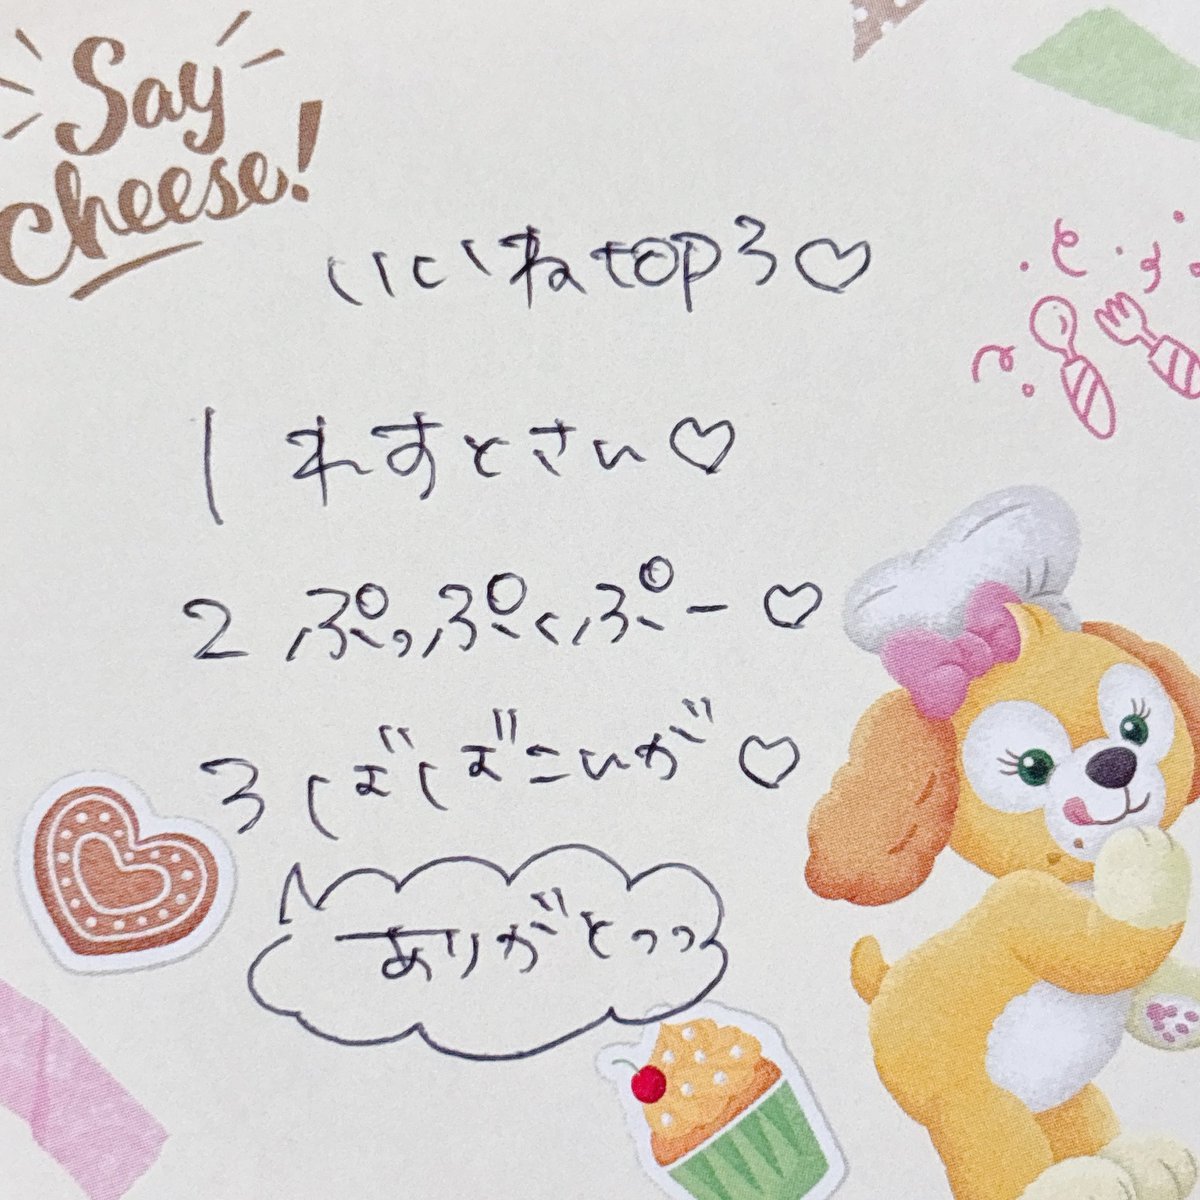 Say
cheese!
いいねtop3♡
1 れすとさい♡
2 ぷっぷくぷー♡
3 しょ゛しょ゛こいが♡
ありがとっっ